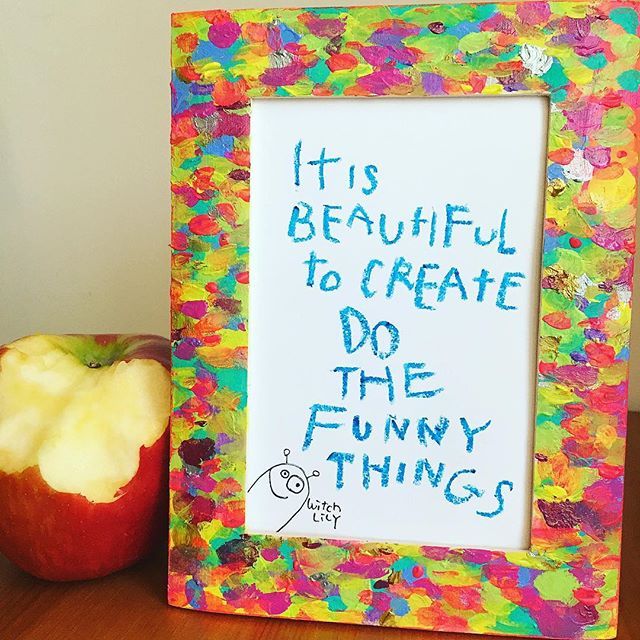 It is
BEAUtIFUL
to CREAtE
DO
THE
FUNNY
THINGS
Witch
LiLy